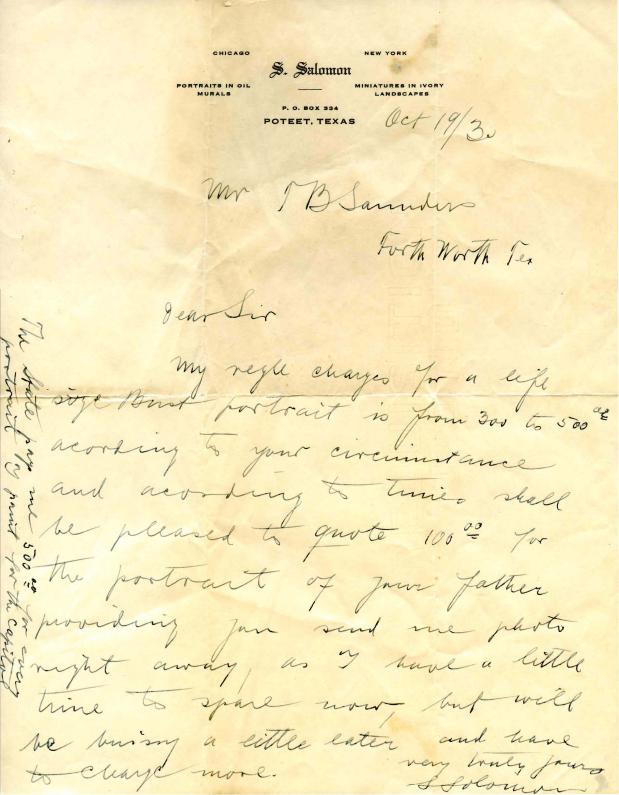 CHICAGO
NEW YORK
S. Salomon
PORTRAITS IN OIL
MURALS
MINIATURES IN IVORY
LANDSCAPES
P. O. BOX 334
POTEET, TEXAS
Oct 19/30
Mr T B Saunders
Forth Worth Tex
Dear Sir
My regle charges for a life
size Bust portrait is from 300 to 500 00
acording to your circumstance
and acording to times shall
be pleased to quote 100 00 for
the portrait of your father
providing you send me photo
right away, as I have a little
time to spare now, but will
be buissy a little later and have
to charge more.
very truly yours
S Solomon
The State pay me 500 00 for every
portrait I paint for the Capitol